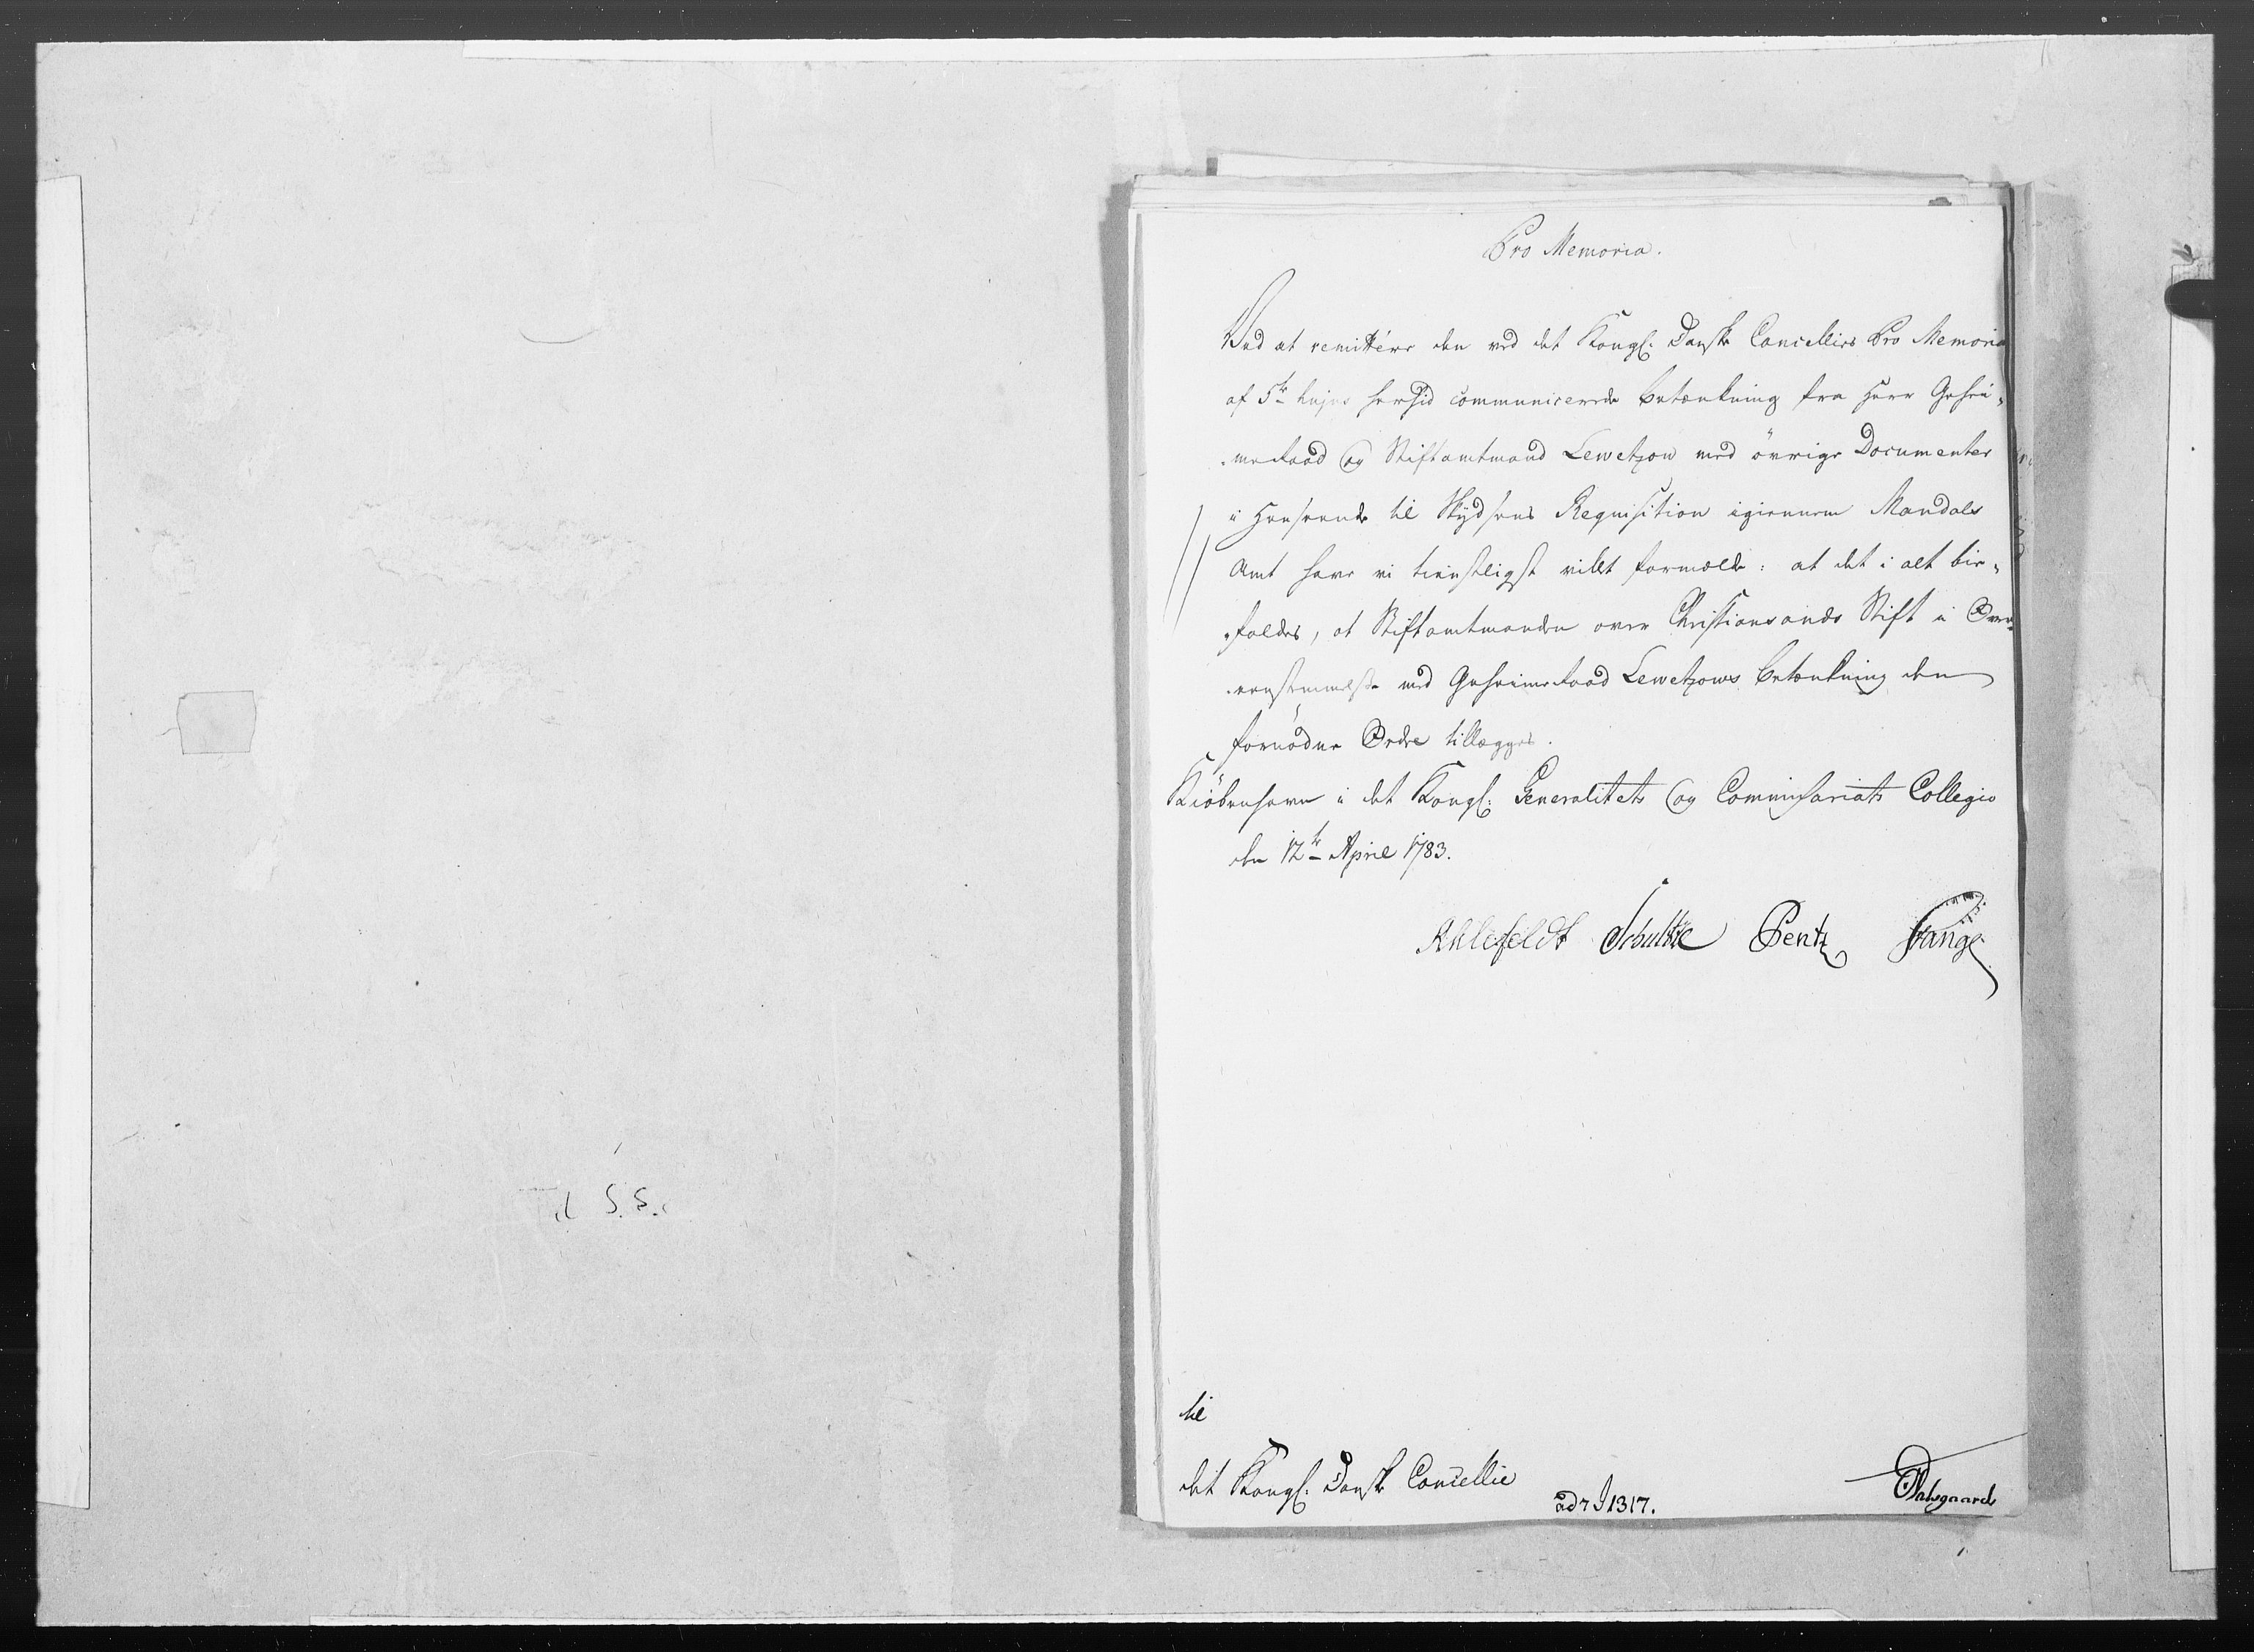 Pro Memoria.
Ved at remittere den ved det Kongl: Danske Cancellies Pro Memoria
af 5te hujus herhid communicerede Betænkning fra Herr Gehei-
-meRaad og Stiftamtmand Lewetzow med övrige Documenter
i Henseende til Skydsens Requisition igiennem Mandals
Amt have vi tienstligst villet formælde: at det i alt bie-
-faldes, at Stiftamtmanden over Christiansands Stift i Over-
-eensstemmelse med GeheimeRaad Lewetzows Betænkning den
fornödne Ordre tillægges.
Kiöbenhavn i det Kongl: Generalitets og Commissariats Collegio
den 12te April 1783.
Ahlefeldt Schultze Pentz Fange
til
det Kongl: Danske Cancellie
ad 1317.
Til S.S.